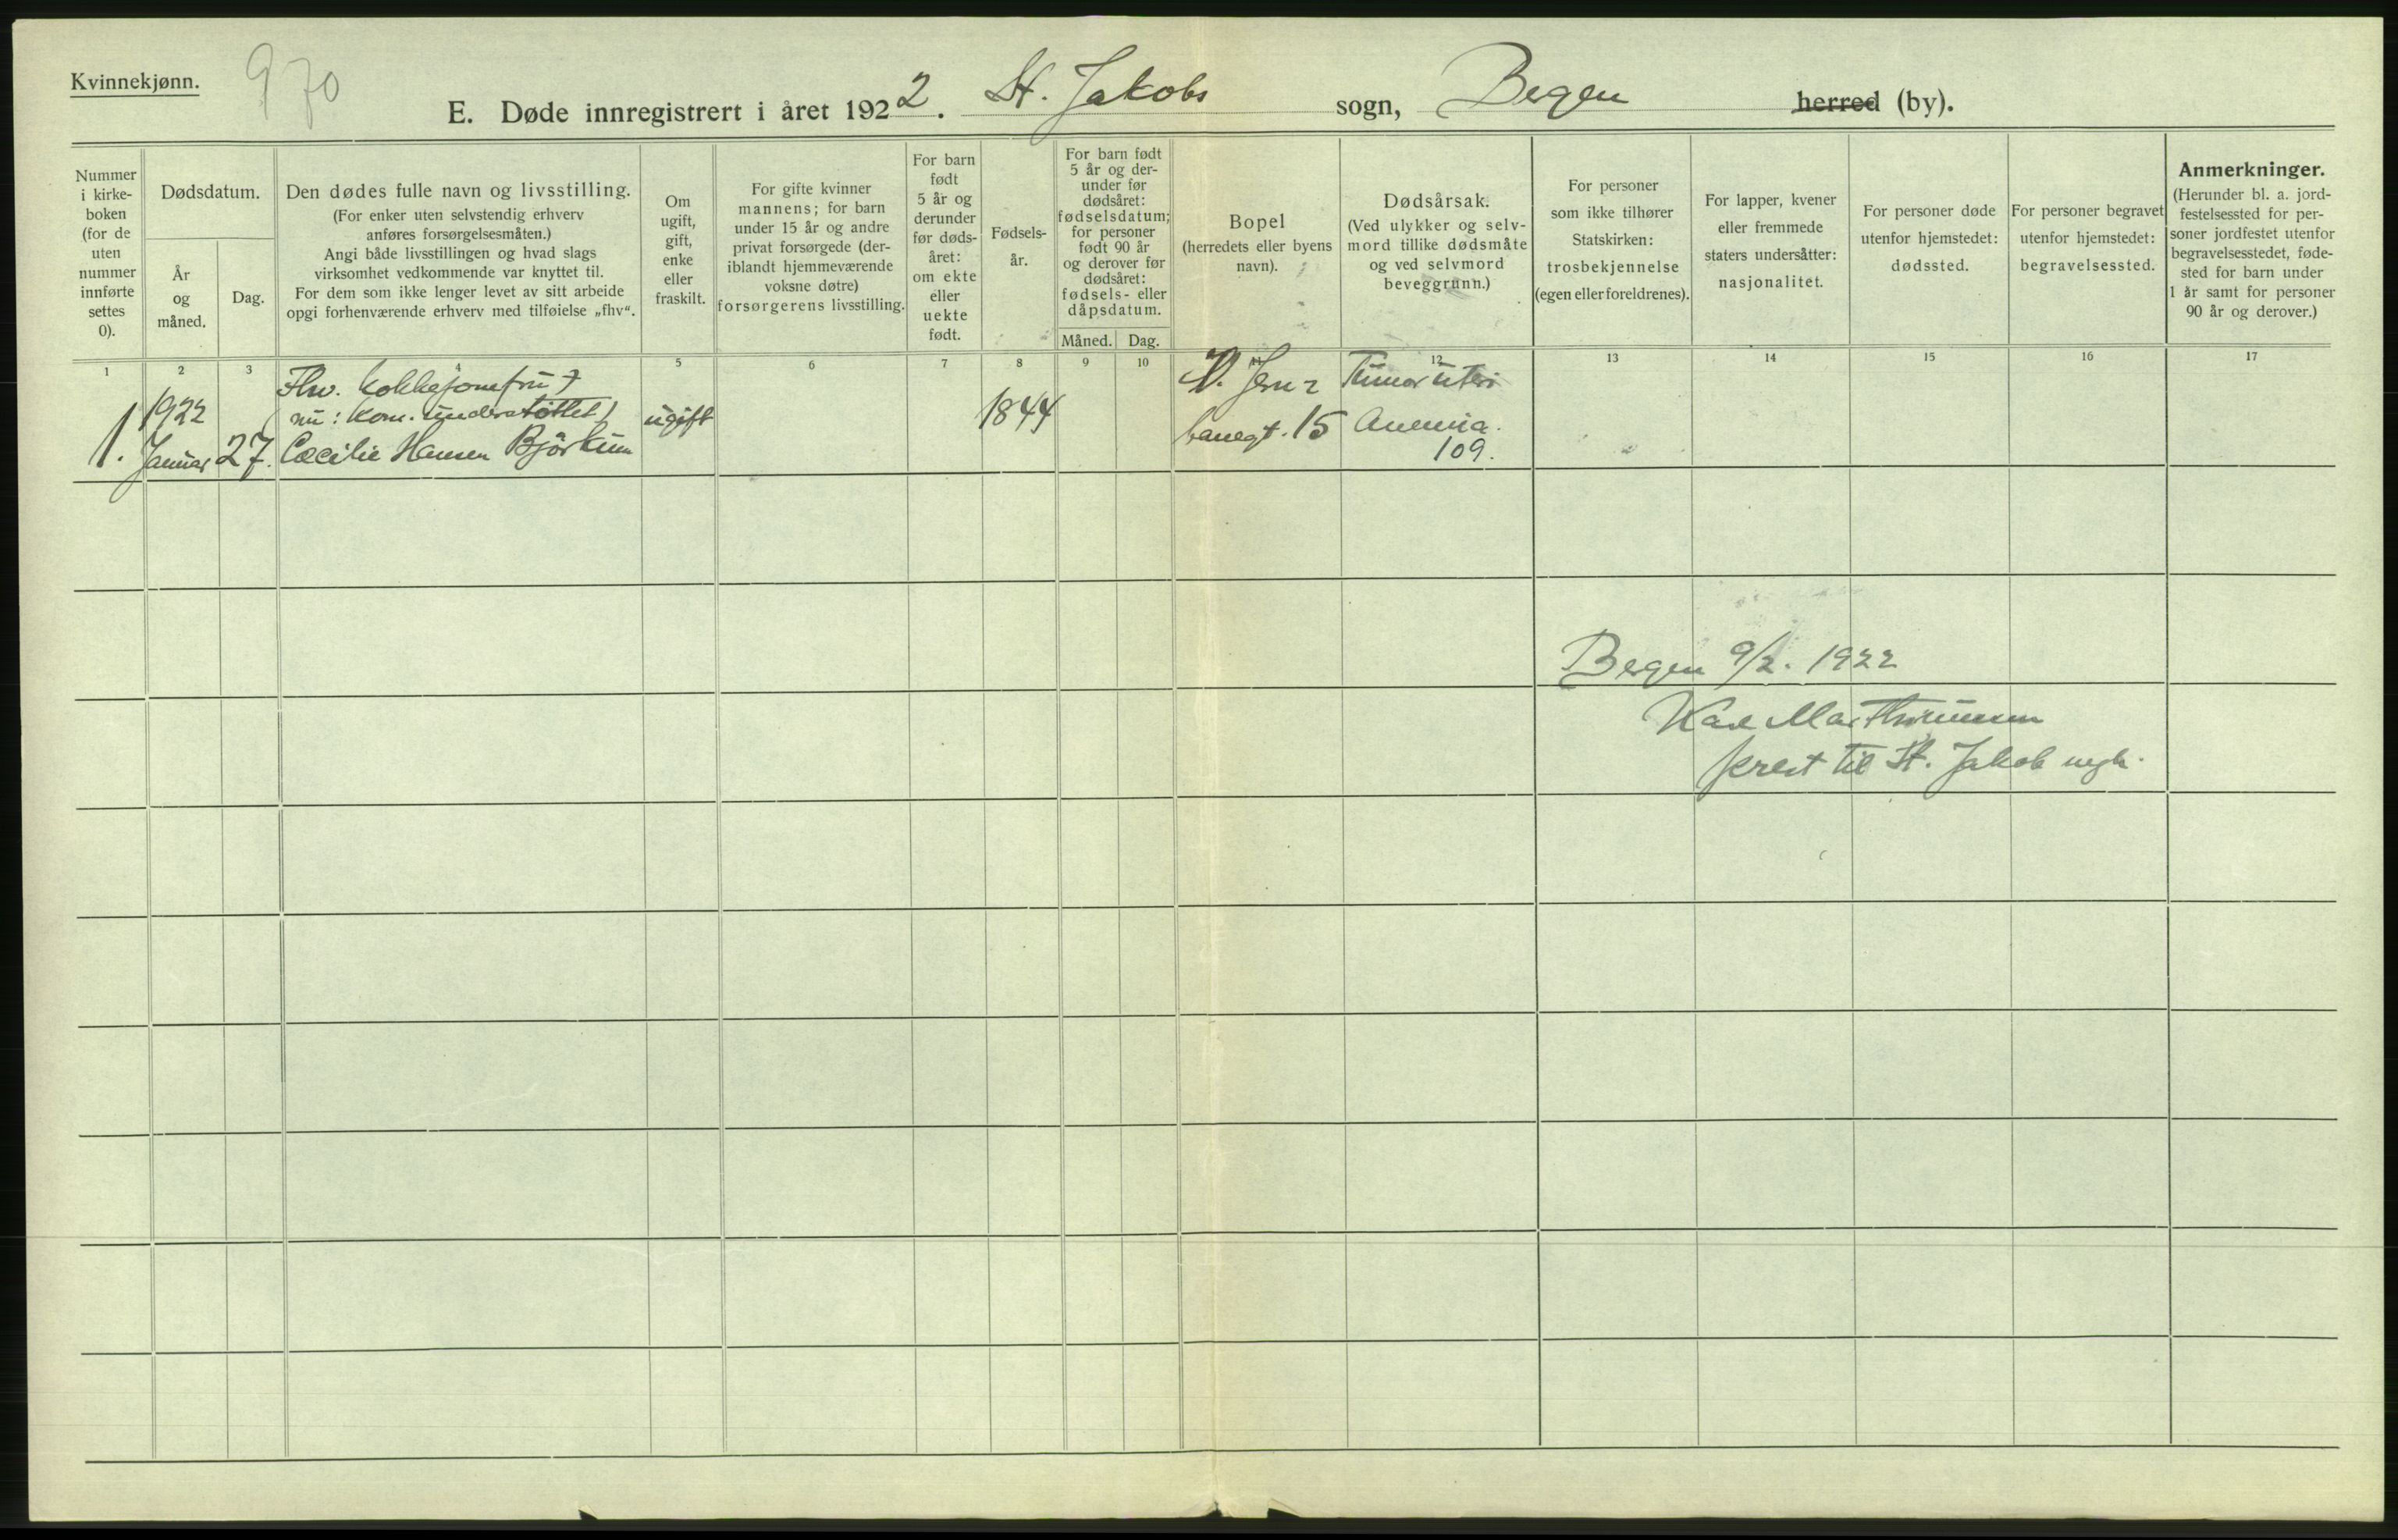 Kvinnekjønn.
970
E. Døde innregistrert i året 1922. St. Jakobs sogn, Bergen herred (by).
Nummer
i kirke-
boken
(for de
uten
nummer
innførte
settes
0).
Dødsdatum.
År
og
måned.
Dag.
Den dødes fulle navn og livsstilling.
(For enker uten selvstendig erhverv
anføres forsørgelsesmåten.)
Angi både livsstillingen og hvad slags
virksomhet vedkommende var knyttet til.
For dem som ikke lenger levet av sitt arbeide
opgi forhenværende erhverv med tilføielse „fhv“.
Om
ugift,
gift,
enke
eller
fraskilt.
For gifte kvinner
mannens; for barn
under 15 år og andre
privat forsørgede (der-
iblandt hjemmeværende
voksne døtre)
forsørgerens livsstilling.
For barn
født
5 år og
derunder
før døds-
året:
om ekte
eller
uekte
født.
Fødsels-
år.
For barn født
5 år og der-
under før
dødsåret:
fødselsdatum;
for personer
født 90 år
og derover før
dødsåret:
fødsels- eller
dåpsdatum.
Måned. Dag.
Bopel
(herredets eller byens
navn).
Dødsårsak.
(Ved ulykker og selv-
mord tillike dødsmåte
og ved selvmord
beveggrunn.)
For personer
som ikke tilhører
Statskirken:
trosbekjennelse
(egen eller foreldrenes).
For lapper, kvener
eller fremmede
staters undersåtter:
nasjonalitet.
For personer døde
utenfor hjemstedet:
dødssted.
For personer begravet
utenfor hjemstedet:
begravelsessted.
Anmerkninger.
(Herunder bl. a. jord-
festelsessted for per-
soner jordfestet utenfor
begravelsesstedet, føde-
sted for barn under
1 år samt for personer
90 år og derover.)
1 2 3 4 5 6 7 8 9 10 11 12 13 14 15 16 17
1.
1922
Januar
27.
Fhv. kokkejomfru
nu: kom. understøttet)
Cæcilie Hansen Bjørkum
ugift
1844
V. Jern-
banegt. 15
Tumor uteri
Anemia.
109.
Bergen 9/2. 1922
Karl Marthinussen
prest til St. Jakob megh.